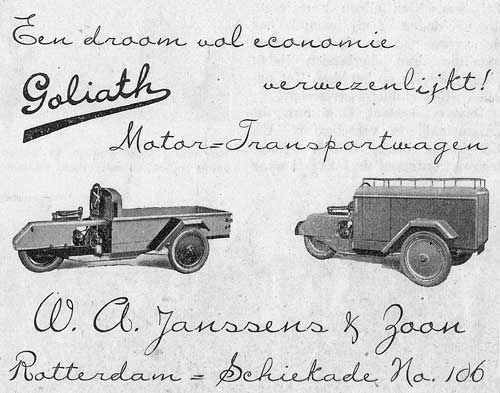 Een droom vol economie
Goliath verwezenlijkt!
Motor=Transportwagen
W. A. Janssens & Zoon
Rotterdam = Schiekade No. 106